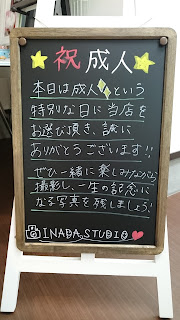 祝成人
本日は成人式という
特別な日に当店を
お選び頂き、誠に
ありがとうございます!!
ぜひ一緒に楽しみながら
撮影し、一生の記念に
なる写真を残しましょう!
INADA STUDIO